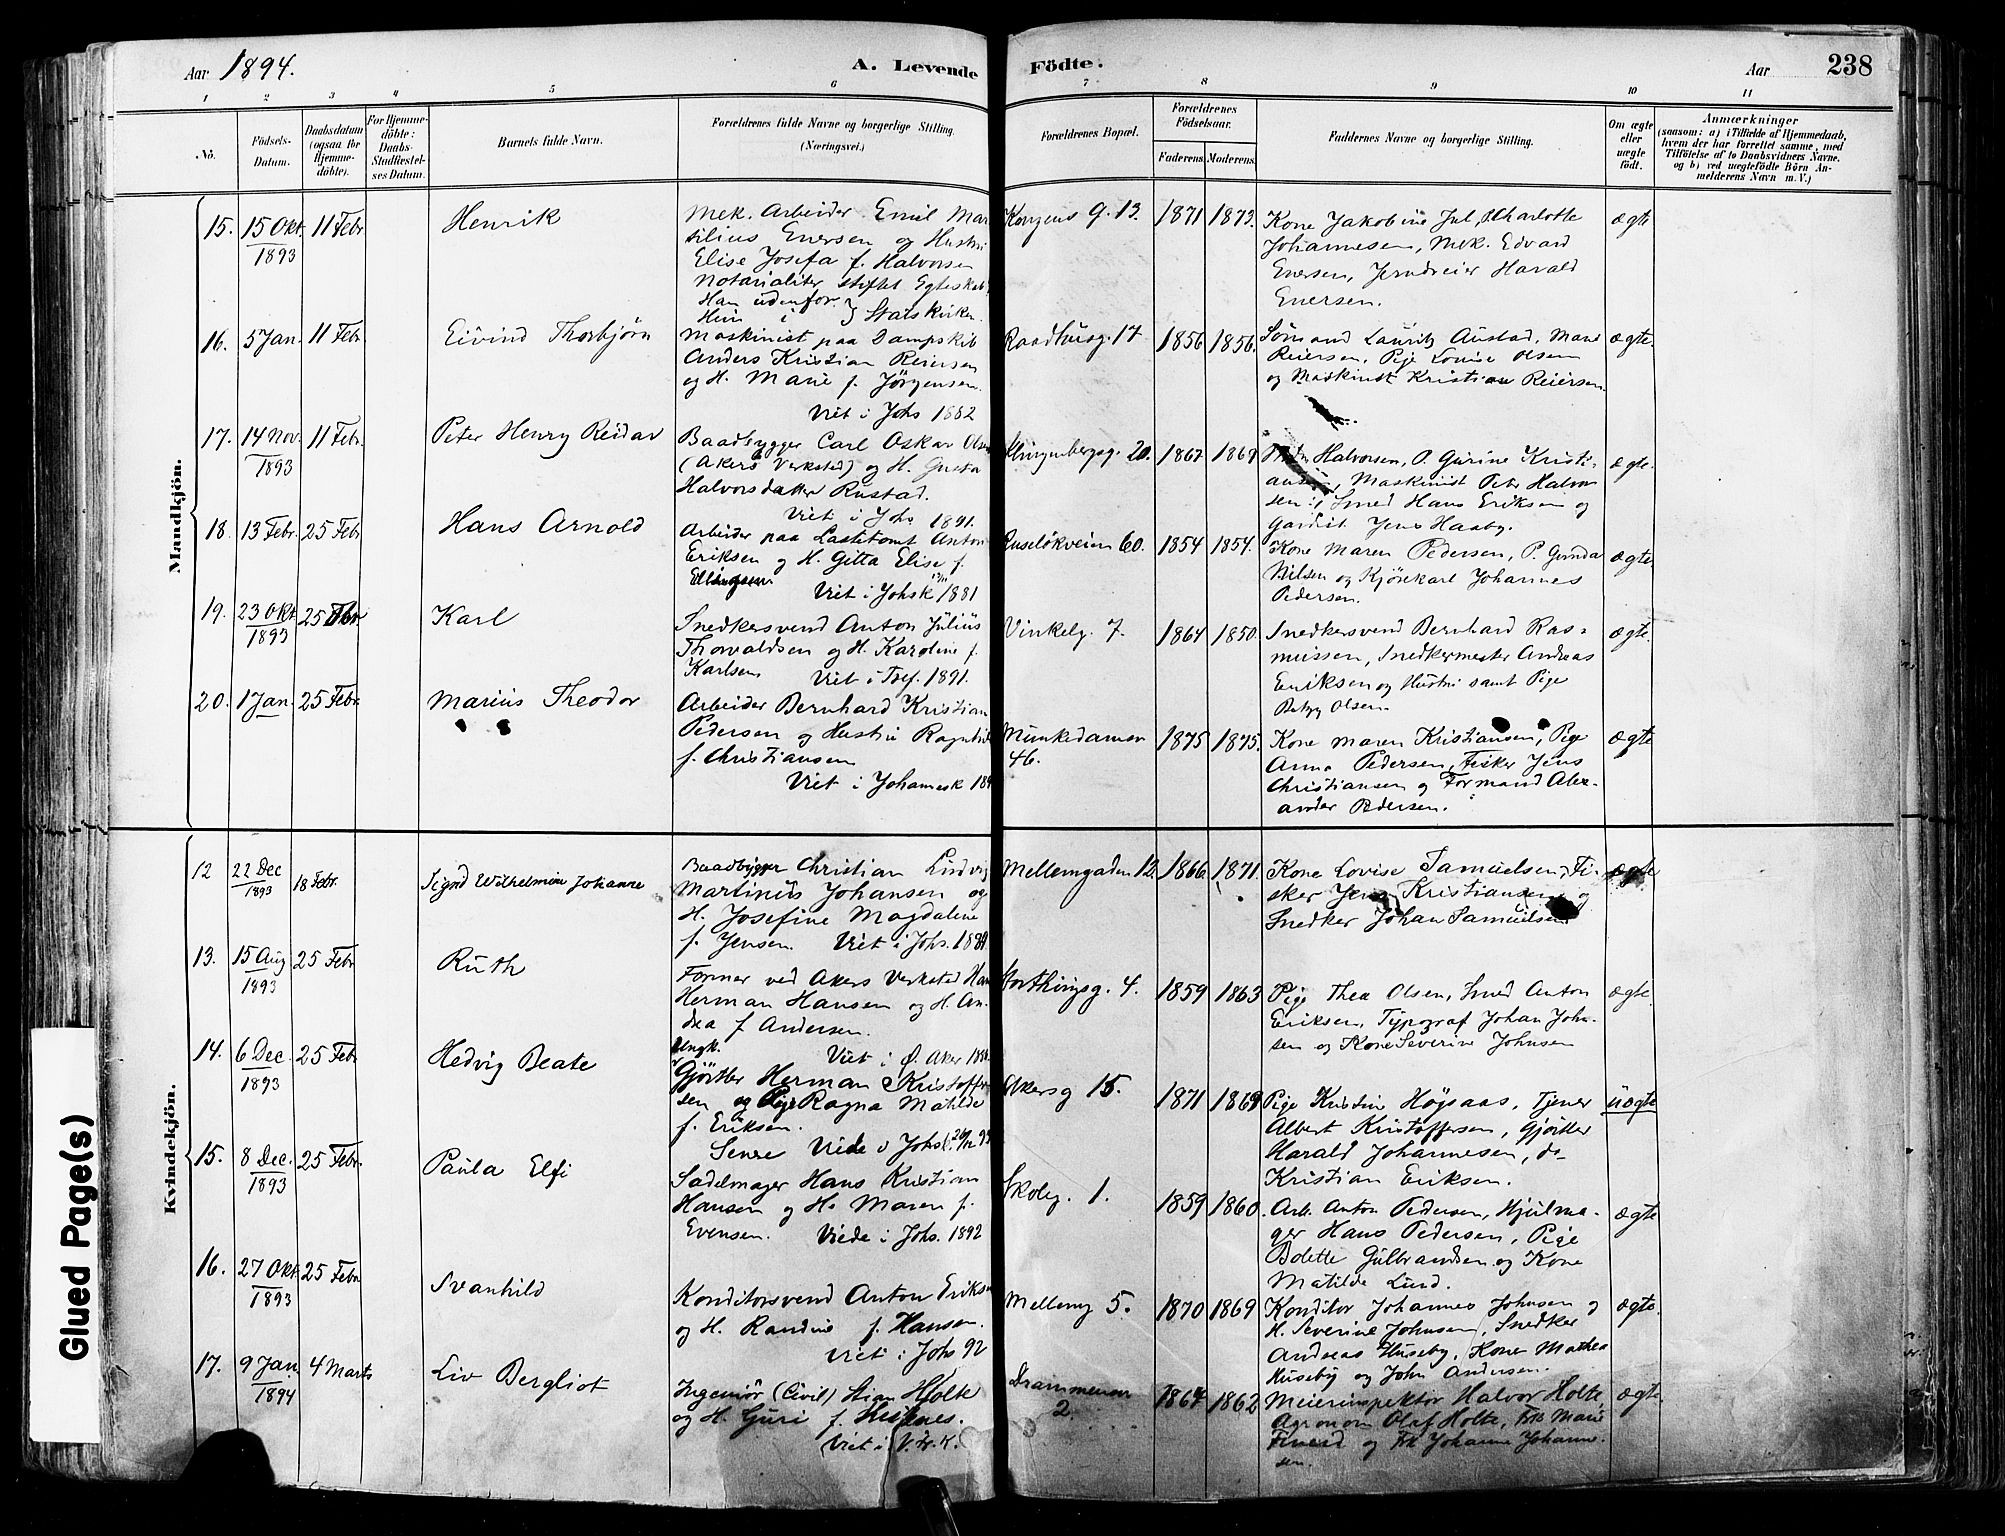 Aar 1894.
A. Levende Födte.
Aar 238
1 2 3 4 5 6 7 8 9 10 11
No.
Födsels-
Datum.
Daabsdatum
(ogsaa for
Hjemme-
döbte).
For Hjemme-
döbte:
Daabs-
Stadfæstel-
ses Datum.
Barnets fulde Navn.
Forældrenes fulde Navne og borgerlige Stilling.
(Næringsvei.)
Forældrenes Bopæl.
Forældrenes
Födselsaar.
Faderens. Moderens.
Faddernes Navne og borgerlige Stilling.
Om ægte
eller
uægte
födt.
Anmærkninger
(saasom: a) i Tilfælde af Hjemmedaab,
hvem der har forrettet samme, med
Tilföielse af to Daabsvidners Navne.
og b) ved uægtefödte Börn An-
melderens Navn m. V.)
Mandkjön.
15. 15 Okt. 1893 11 Febr. Henrik
Mek. Arbeider Emil Mar
tilius Enersen og Hustru
Elise Josefa f. Halvorsen
Notarialiter stiftet Egteskab
Han udenfor } Statskirken
Hun i
Kongens g. 13. 1871 1873.
Kone Jakobine Jul, Charlotte
Johannesen, Mek. Edvard
Enersen, Jerndreier Harald
Enersen.
ægte
16. 5 Jan. 11 Febr. Eivind Thorbjörn
Maskinist paa Dampskib
Anders Kristian Reiersen
og H. Marie f. Jörgensen.
Viet i Johs 1882
Raadhusg. 17 1856 1856.
Sömand Lauritz Austad, Marie
Reiersen, Pige Louise Olsen
og Maskinist Kristian Reiersen
ægte.
17. 14 Nov. 1893 11 Febr. Peter Henry Reidar
Baadbygger Carl Oskar Olsen
(Akers Verksted) og H. Gusta
Halvorsdatter Rustad.
Viet i Johs 1891.
Klingenbergsg. 20. 1867 1869
Halvorsen, P. Gurine Kristi-
Maskinist Peter Halvor
sen, Smed Hans Eriksen og
Gardist Jens Haaby.
ægte.
18. 13 Febr. 25 Febr Hans Arnold
Arbeider paa Lastetomt Anton
Eriksen og H. Gitta Elise f.
Ellingsen
Viet i Johsk 1881
Ruselökveien 60. 1854 1854.
Kone Maren Pedersen, P. Gunda
Nilsen og Kjörekarl Johannes
Pedersen.
ægte
19. 23 Okt. 1893 25 Febr. Karl
Snedkersvend Anton Julius
Thorvaldsen og H. Karoline f.
Karlsen
Viet i Tref. 1891.
Vinkelg. 7. 1864 1850.
Snedkersvend Bernhard Ras-
mussen, Snedkermester Andreas
Eriksen og Hustru samt Pige
Olsen.
ægte.
20. 1 Jan. 25 Febr. Marius Theodor
Arbeider Bernhard Kristian
Pedersen og Hustru Ragnhild
f. Christiansen
Viet i Johannesk 189
Munkedamsv
46. 1875 1875.
Kone Maren Kristiansen, Pige
Anna Pedersen, Fisker Jens
Christiansen og Formand Alex-
ander Pedersen.
ægte
Kvindekjön.
12 22 Dec 1893 18 Febr. Signd Wilhelmine Johanne
Baadbygger Christian Ludvig
Martinius Johansen og
H. Josefine Magdalene
f. Jensen. Viet i Johs. 189
Mellemgaden 12. 1866 1871.
Kone Lovise Samuelsen, Fi-
sker Jens Kristiansen og
Snedker Johan Samuelsen
ægte
13. 15 Aug 1893 25 Febr Ruth
Former ved Akers Verksted Hans
Herman Hansen og H. An-
dea f Andersen.
Viet i Ø. Aker 188
Storthingsg. 4. 1859 1863
Pige Thea Olsen, Smed Anton
Eriksen, Typograf Johan John-
sen og Kone Severine Johnsen
ægte.
14. 6 Dec. 1893 25 Febr Hedvig Beate
Ungk.
Gjörtler Herman Kristoffer
sen og Pige Ragna Matilde
f. Eriksen.
Senere Viede i Johs.
Akersg 15. 1871 1869
Pige Kristin Höysaas, Tjener
Albert Kristoffersen, Gjörtler
Harald Johannesen, do
Kristian Eriksen.
uægte
15. 8 Dec. 1893 25 Febr. Paula Elfi
Sadelmager Hans Kristian
Hansen og H. Maren f.
Evensen. Viede i Johs. 1892
Skoleg. 1. 1859 1860.
Arb. Anton Pedersen, Hjulma-
ger Hans Pedersen, Pige
Bolette Gulbrandsen og Kone
Matilde Lund.
ægte
16. 27 Okt. 1893 25 Febr Svanhild
Konditorsvend Anton Eriksen
og H. Randine f. Hansen.
Viet i Johs 92
Mellemg 5. 1870 1869
Konditor Johannes Johnsen og
H. Severine Johnsen, Snedker
Andreas Huseby, Kone Mathea
Huseby og John Andersen.
ægte.
17. 9 Jan. 1894 4 Marts Liv Bergliot
Ingeniör (Civil) Stian Holte
og H. Guri f.
Viet i V. Fr. K.
Drammensv
2. 1864 1862
Meieriinspektör Halvor Holte,
Agronom Olaf Holte, Frk Marie
og Frk Johanne Johanne-
sen.
ægte.
Glued Page(s)